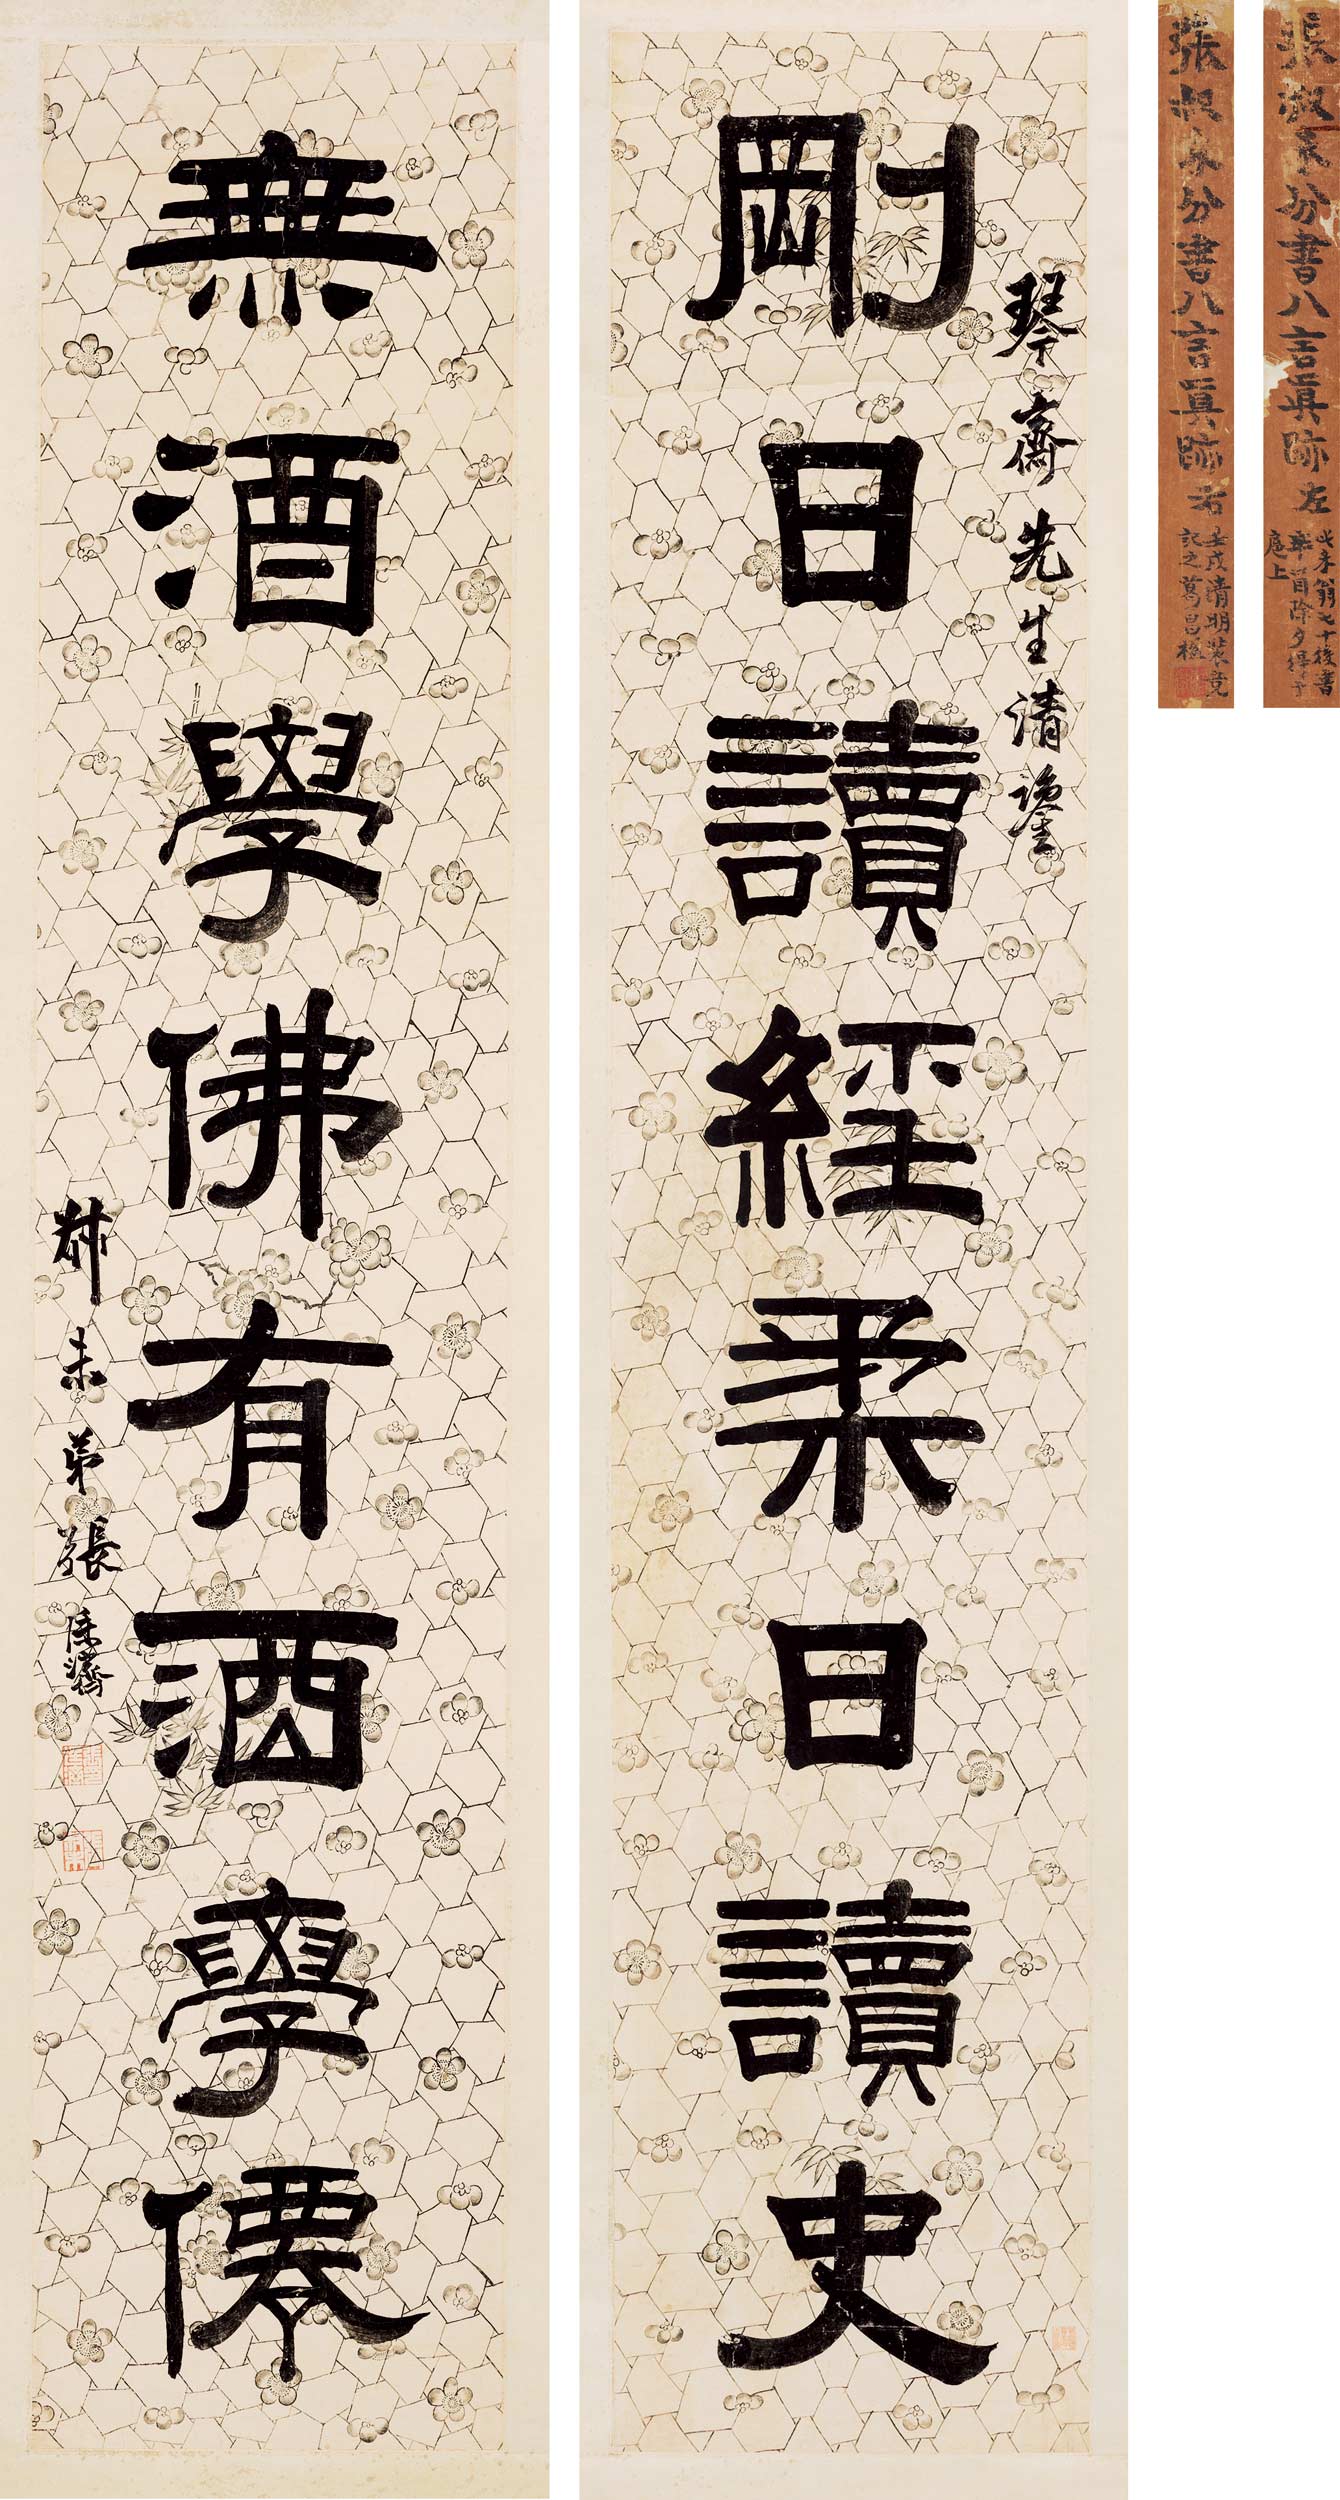 張叔未分書八言眞跡左
此未翁七十後書
辛酉除夕得于
滬上
張叔未分書八言眞跡右
壬戌清明裝竟
記之葛昌楹
琴齋先生清鑒
剛日讀經柔日讀史
無酒學佛有酒學僊
叔未弟張廷濟